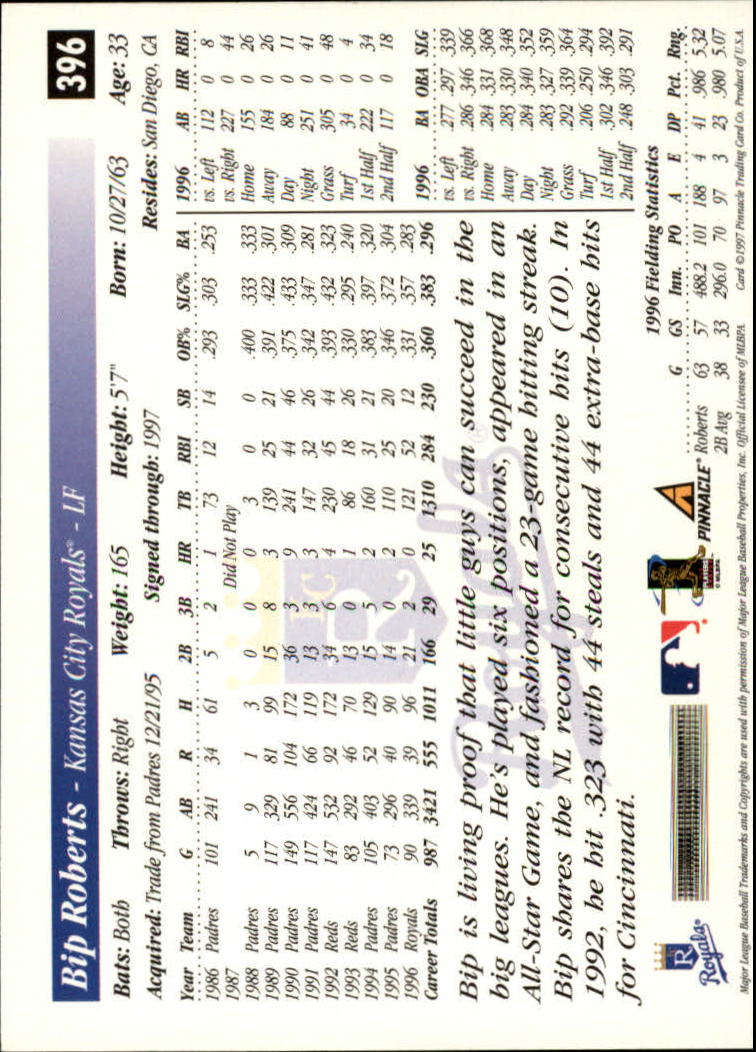 Bip Roberts - Kansas City Royals® - LF 396
Bats: Both Throws: Right Weight: 165 Height: 5'7" Born: 10/27/63 Age: 33
Acquired: Trade from Padres 12/21/95 Signed through: 1997 Resides: San Diego, CA
Year Team G AB R H 2B 3B HR TB RBI SB OB% SLG% BA
1986 Padres 101 241 34 61 5 2 1 73 12 14 .293 .303 .253
1987 Did Not Play
1988 Padres 5 9 1 3 0 0 0 3 0 0 .400 .333 .333
1989 Padres 117 329 81 99 15 8 3 139 25 21 .391 .422 .301
1990 Padres 149 556 104 172 36 3 9 241 44 46 .375 .433 .309
1991 Padres 117 424 66 119 13 3 3 147 32 26 .342 .347 .281
1992 Reds 147 532 92 172 34 6 4 230 45 44 .393 .432 .323
1993 Reds 83 292 46 70 13 0 1 86 18 26 .330 .295 .240
1994 Padres 105 403 52 129 15 5 2 160 31 21 .383 .397 .320
1995 Padres 73 296 40 90 14 0 2 110 25 20 .346 .372 .304
1996 Royals 90 339 39 96 21 2 0 121 52 12 .331 .357 .283
Career Totals 987 3421 555 1011 166 29 25 1310 284 230 .360 .383 .296
1996 AB HR RBI
vs. Left 112 0 8
vs. Right 227 0 44
Home 155 0 26
Away 184 0 26
Day 88 0 11
Night 251 0 41
Grass 305 0 48
Turf 34 0 4
1st Half 222 0 34
2nd Half 117 0 18
1996 BA OBA SLG
vs. Left .277 .297 .339
vs. Right .286 .346 .366
Home .284 .331 .368
Away .283 .330 .348
Day .284 .340 .352
Night .283 .327 .359
Grass .292 .339 .364
Turf .206 .250 .294
1st Half .302 .346 .392
2nd Half .248 .303 .291
Bip is living proof that little guys can succeed in the
big leagues. He's played six positions, appeared in an
All-Star Game, and fashioned a 23-game hitting streak.
Bip shares the NL record for consecutive hits (10). In
1992, he hit .323 with 44 steals and 44 extra-base hits
for Cincinnati.
1996 Fielding Statistics
G GS Inn. PO A E DP Pct. Rng.
Roberts 63 57 488.2 101 188 4 41 .986 5.32
2B Avg 38 33 296.0 70 97 3 23 .980 5.07
R
Royals®
PLAYERS
© MLBPA
PINNACLE®
Major League Baseball Trademarks and Copyrights are used with permission of Major League Baseball Properties, Inc. Official Licensee of MLBPA Card © 1997 Pinnacle Trading Card Co. Product of U.S.A.
KC
R
Royals®